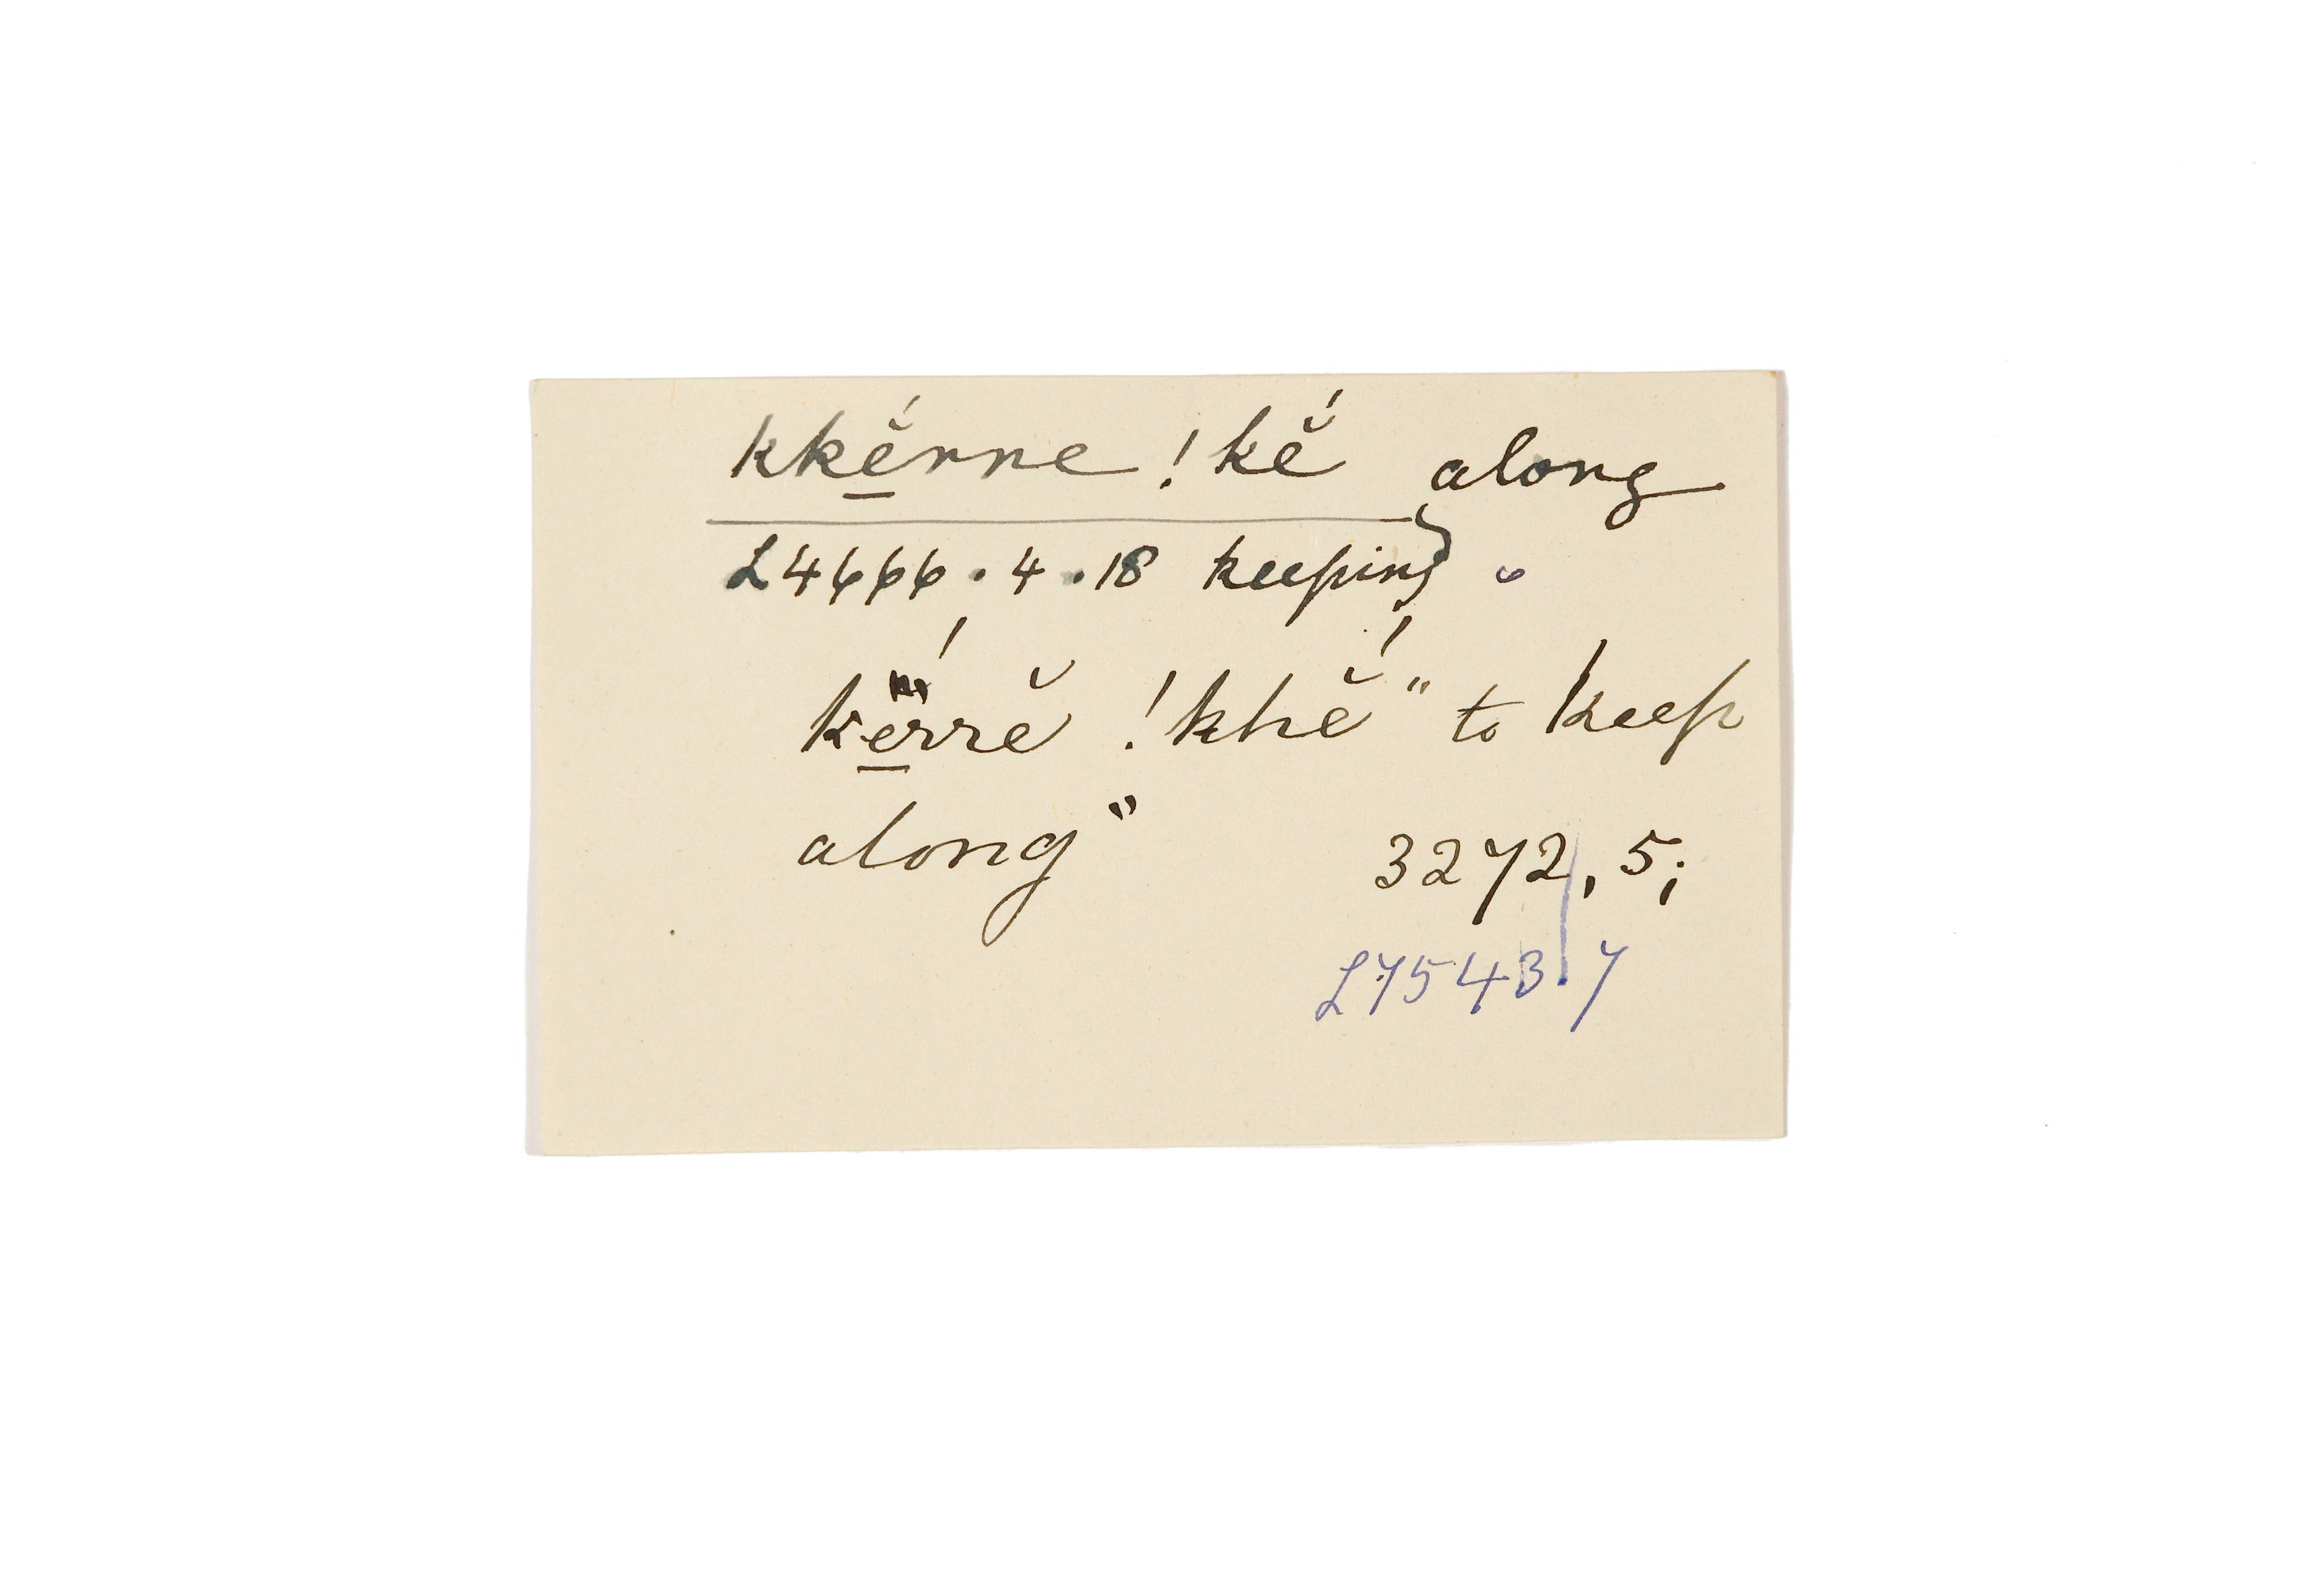 kkĕ̱́rre !kĕ́ along
L4666.4.18 keeping "
kë̱́rrĕ !khĕ́ "to keep
along"
3272,5;
L7543.7